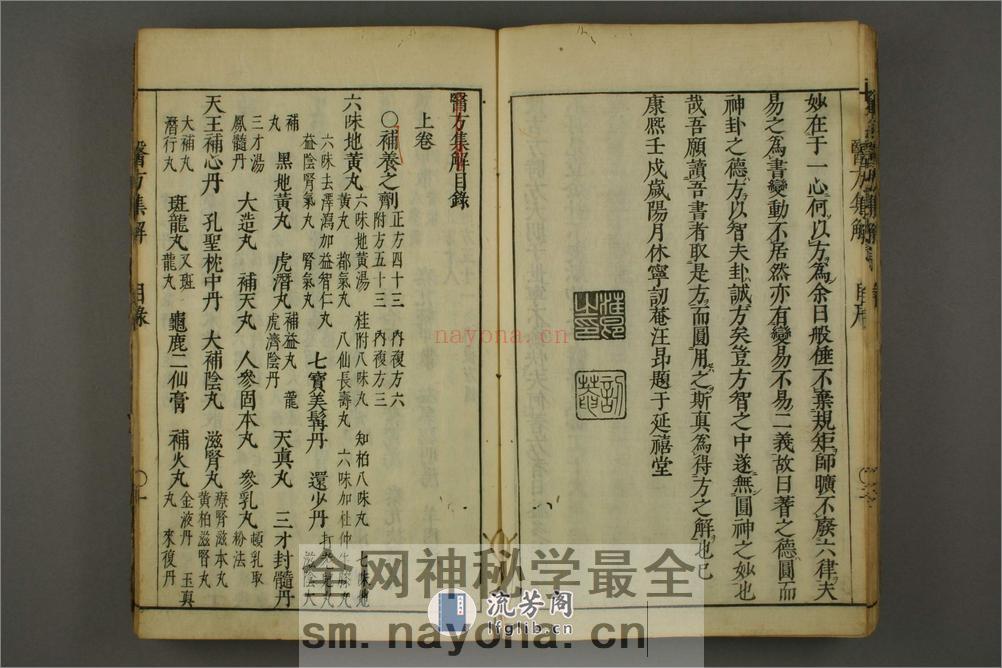 妙在于一心何以方為余曰般倕不棄規矩師曠不廢六律夫
易之為書變動不居然亦有變易不易二義故曰蓍之德圓而
神卦之德方以智夫卦誠方矣豈方智之中遂無圓神之妙也
哉吾願讀吾書者取是方而圓用之斯真為得方之解也已
康熙壬戌歲陽月休寧訒菴汪昂題于延禧堂
醫方集解
自序
醫方集解目錄
上卷
○補養之劑 正方四十三 內複方六 附方五十三 內複方三
六味地黃丸 六味地黃湯 桂附八味丸 知柏八味丸 七味地
黃丸 都氣丸 八仙長壽丸 六味加杜仲牛膝丸
六味去澤瀉加益智仁丸
益陰腎氣丸 腎氣丸
七寶美髯丹 還少丹 打老兒丸 滋陰大
補丸 黑地黃丸 虎潛丸 補益丸 龍虎濟陰丹 天真丸 三才封髓丹
三才湯 鳳髓丹 大造丸 補天丸 人參固本丸 參乳丸 頓乳取粉法
天王補心丹 孔聖枕中丹 大補陰丸 滋腎丸 療腎滋本丸 黃柏滋腎丸
大補丸 潛行丸 班龍丸 又班龍丸 龜鹿二仙膏 補火丸 金液丹 玉真丸 來復丹
醫方集解
目錄
○一
nayona.cn
全网神秘学最全
流芳阁
lfglib.cn
sm.nayona.cn